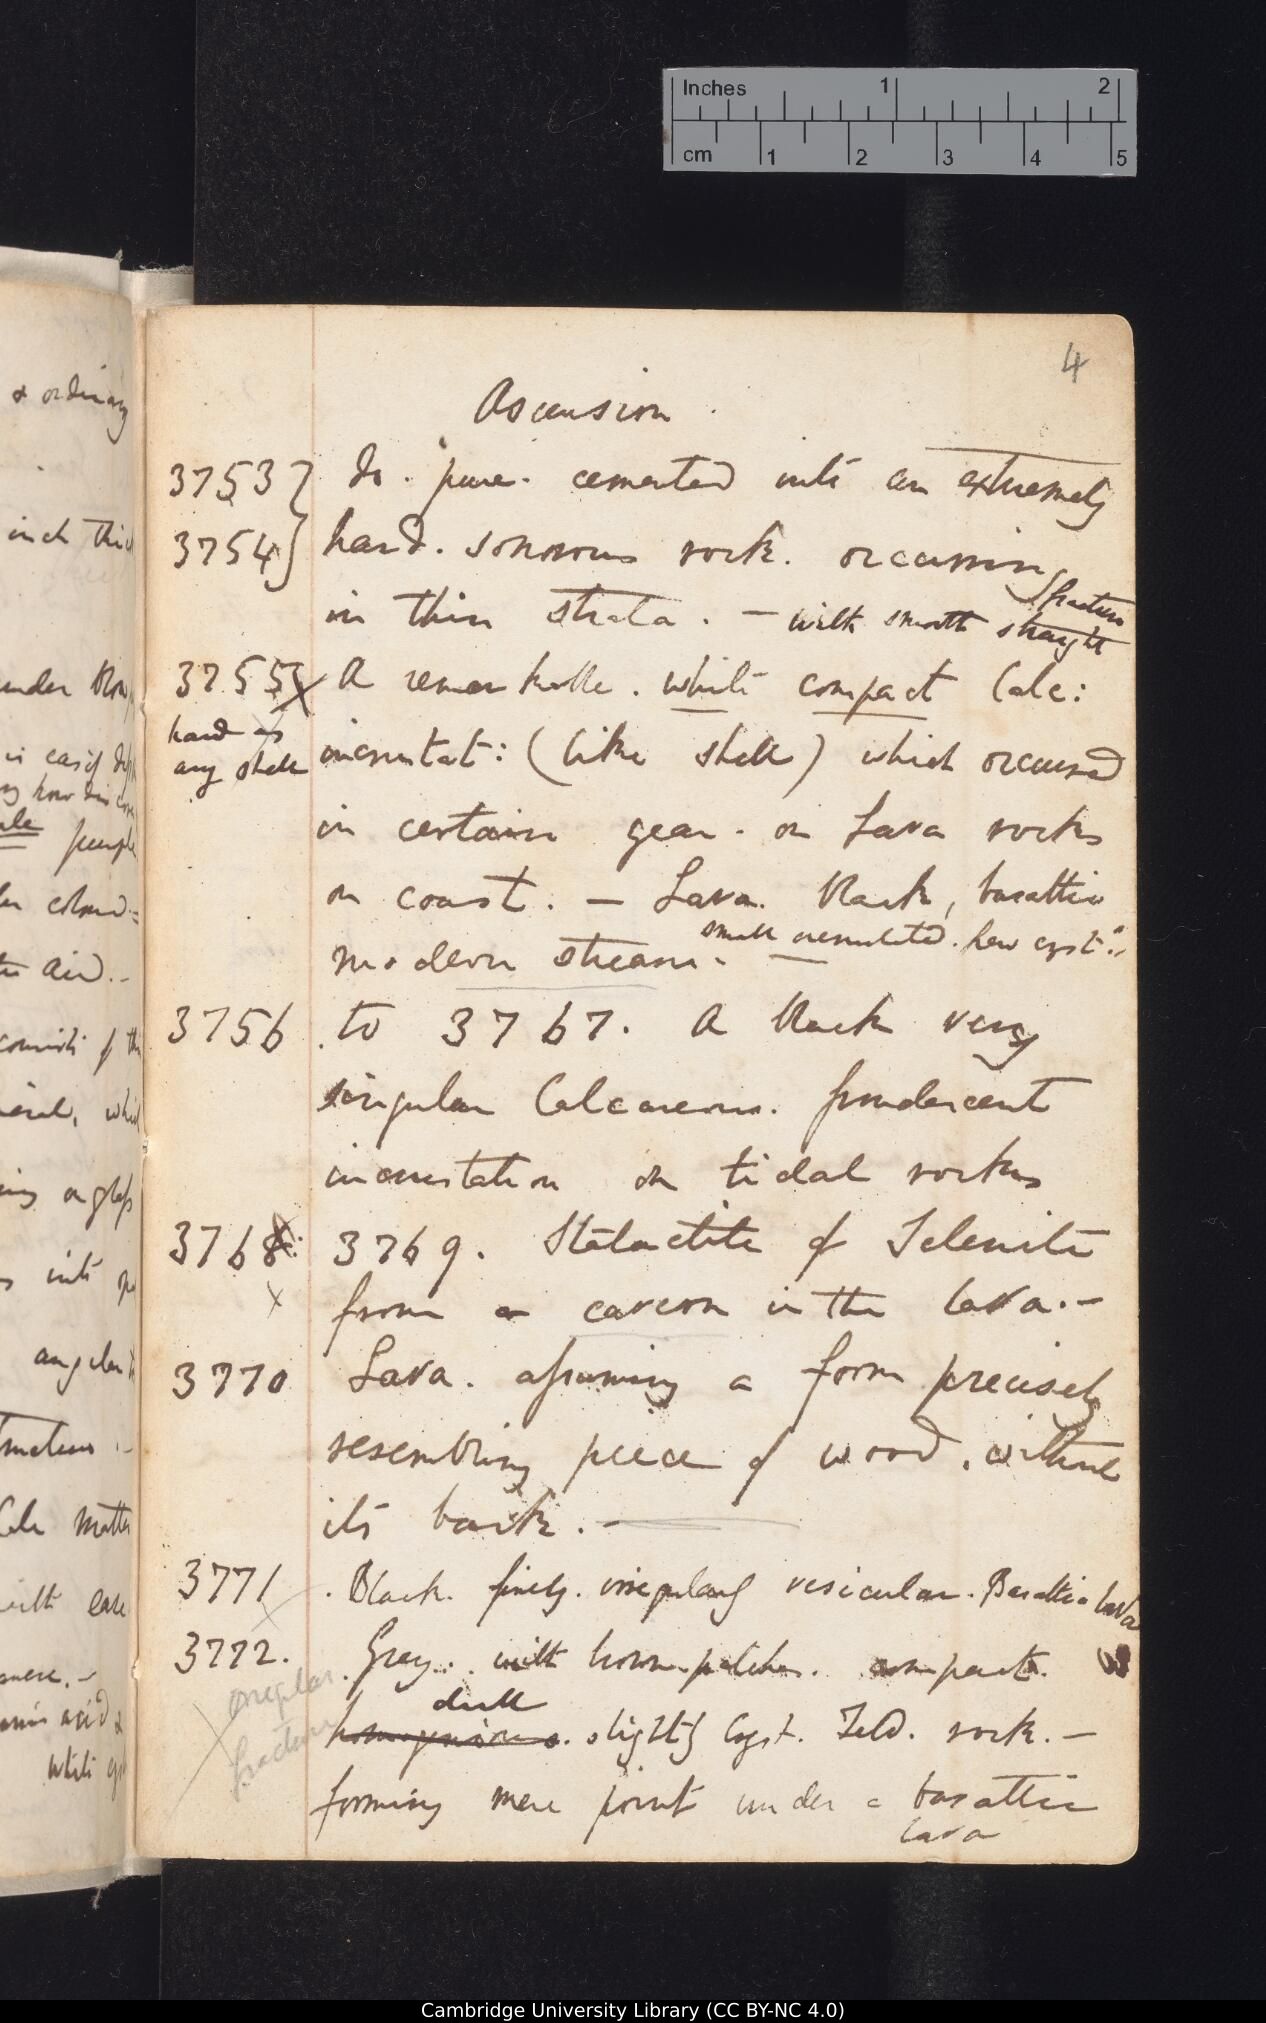 Inches 1 2
cm 1 2 3 4 5
4
Ascension
3753} do. pure. cemented into an extremely
3754} hard. sonorous rock. occurring
in thin strata. — with smooth straight
fracture
3755 A remarkable. white compact Calc:
hard as
any shell
incrustat: (like shell) which occurred
in certain on Lava rocks
on coast. — Lava. black, basaltic
small cryst:
modern stream.
3756 to 3767. A black very
singular Calcareous. frondescent
incrustation on tidal rocks
3768: 3769. Stalactite of Selenite
x
from a cavern in the lava.—
3770 Lava. assuming a form precisely
resembling piece of wood, without
its bark.—
3771 . Black. finely. irregularly vesicular. Basaltic lava
3772. Grey.. with brown patches. compact.
irregular
fracture
dull
homogenious. slightly Cryst. Feld. rock.—
forming mere point under a basaltic
lava
& ordinary
inch thick
under Blow
is easily
purple
the air.—
angular
Calc matter
with ease
acid &
white
Cambridge University Library (CC BY-NC 4.0)